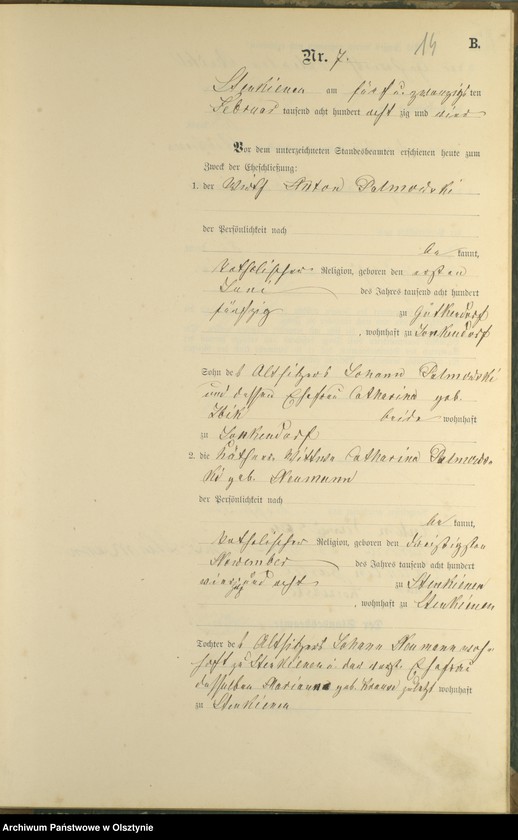 14
B.
Nr. 7.
Stenkienen am fünf u. zwanzigsten
Februar tausend acht hundert achtzig und vier
Vor dem unterzeichneten Standesbeamten erschienen heute zum
Zweck der Eheschließung:
1. der Wirth Anton Palmowski
der Persönlichkeit nach
be kannt,
katholischer Religion, geboren den ersten
Juni des Jahres tausend acht hundert
fünfzig zu Gütkendorf
, wohnhaft zu Jonkendorf
Sohn des Altsitzers Johann Palmowski
und dessen Ehefrau Catharina geb.
beide wohnhaft
zu Jonkendorf
2. die Käthner Wittwe Catharina Palmows-
ki geb. Neumann
der Persönlichkeit nach
be kannt,
katholischer Religion, geboren den dreißigsten
November des Jahres tausend acht hundert
vierzig und acht zu Stenkienen
, wohnhaft zu Stenkienen
Tochter des Altsitzers Johann Neumann wohn-
haft zu Stenkienen u. der verst. Ehefrau
desselben Marianna geb. Krause zuletzt wohnhaft
zu Stenkienen
Archiwum Państwowe w Olsztynie